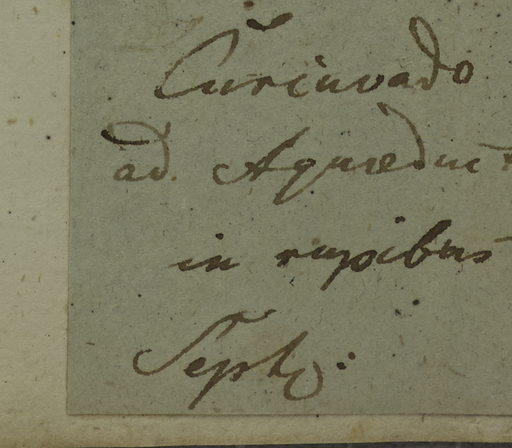 Curinvado
ad Aquæduct
in rupibus
Septb: